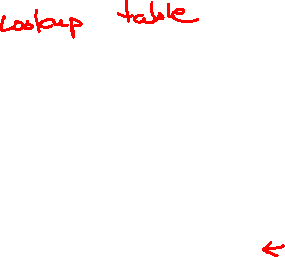 Lookup table
←